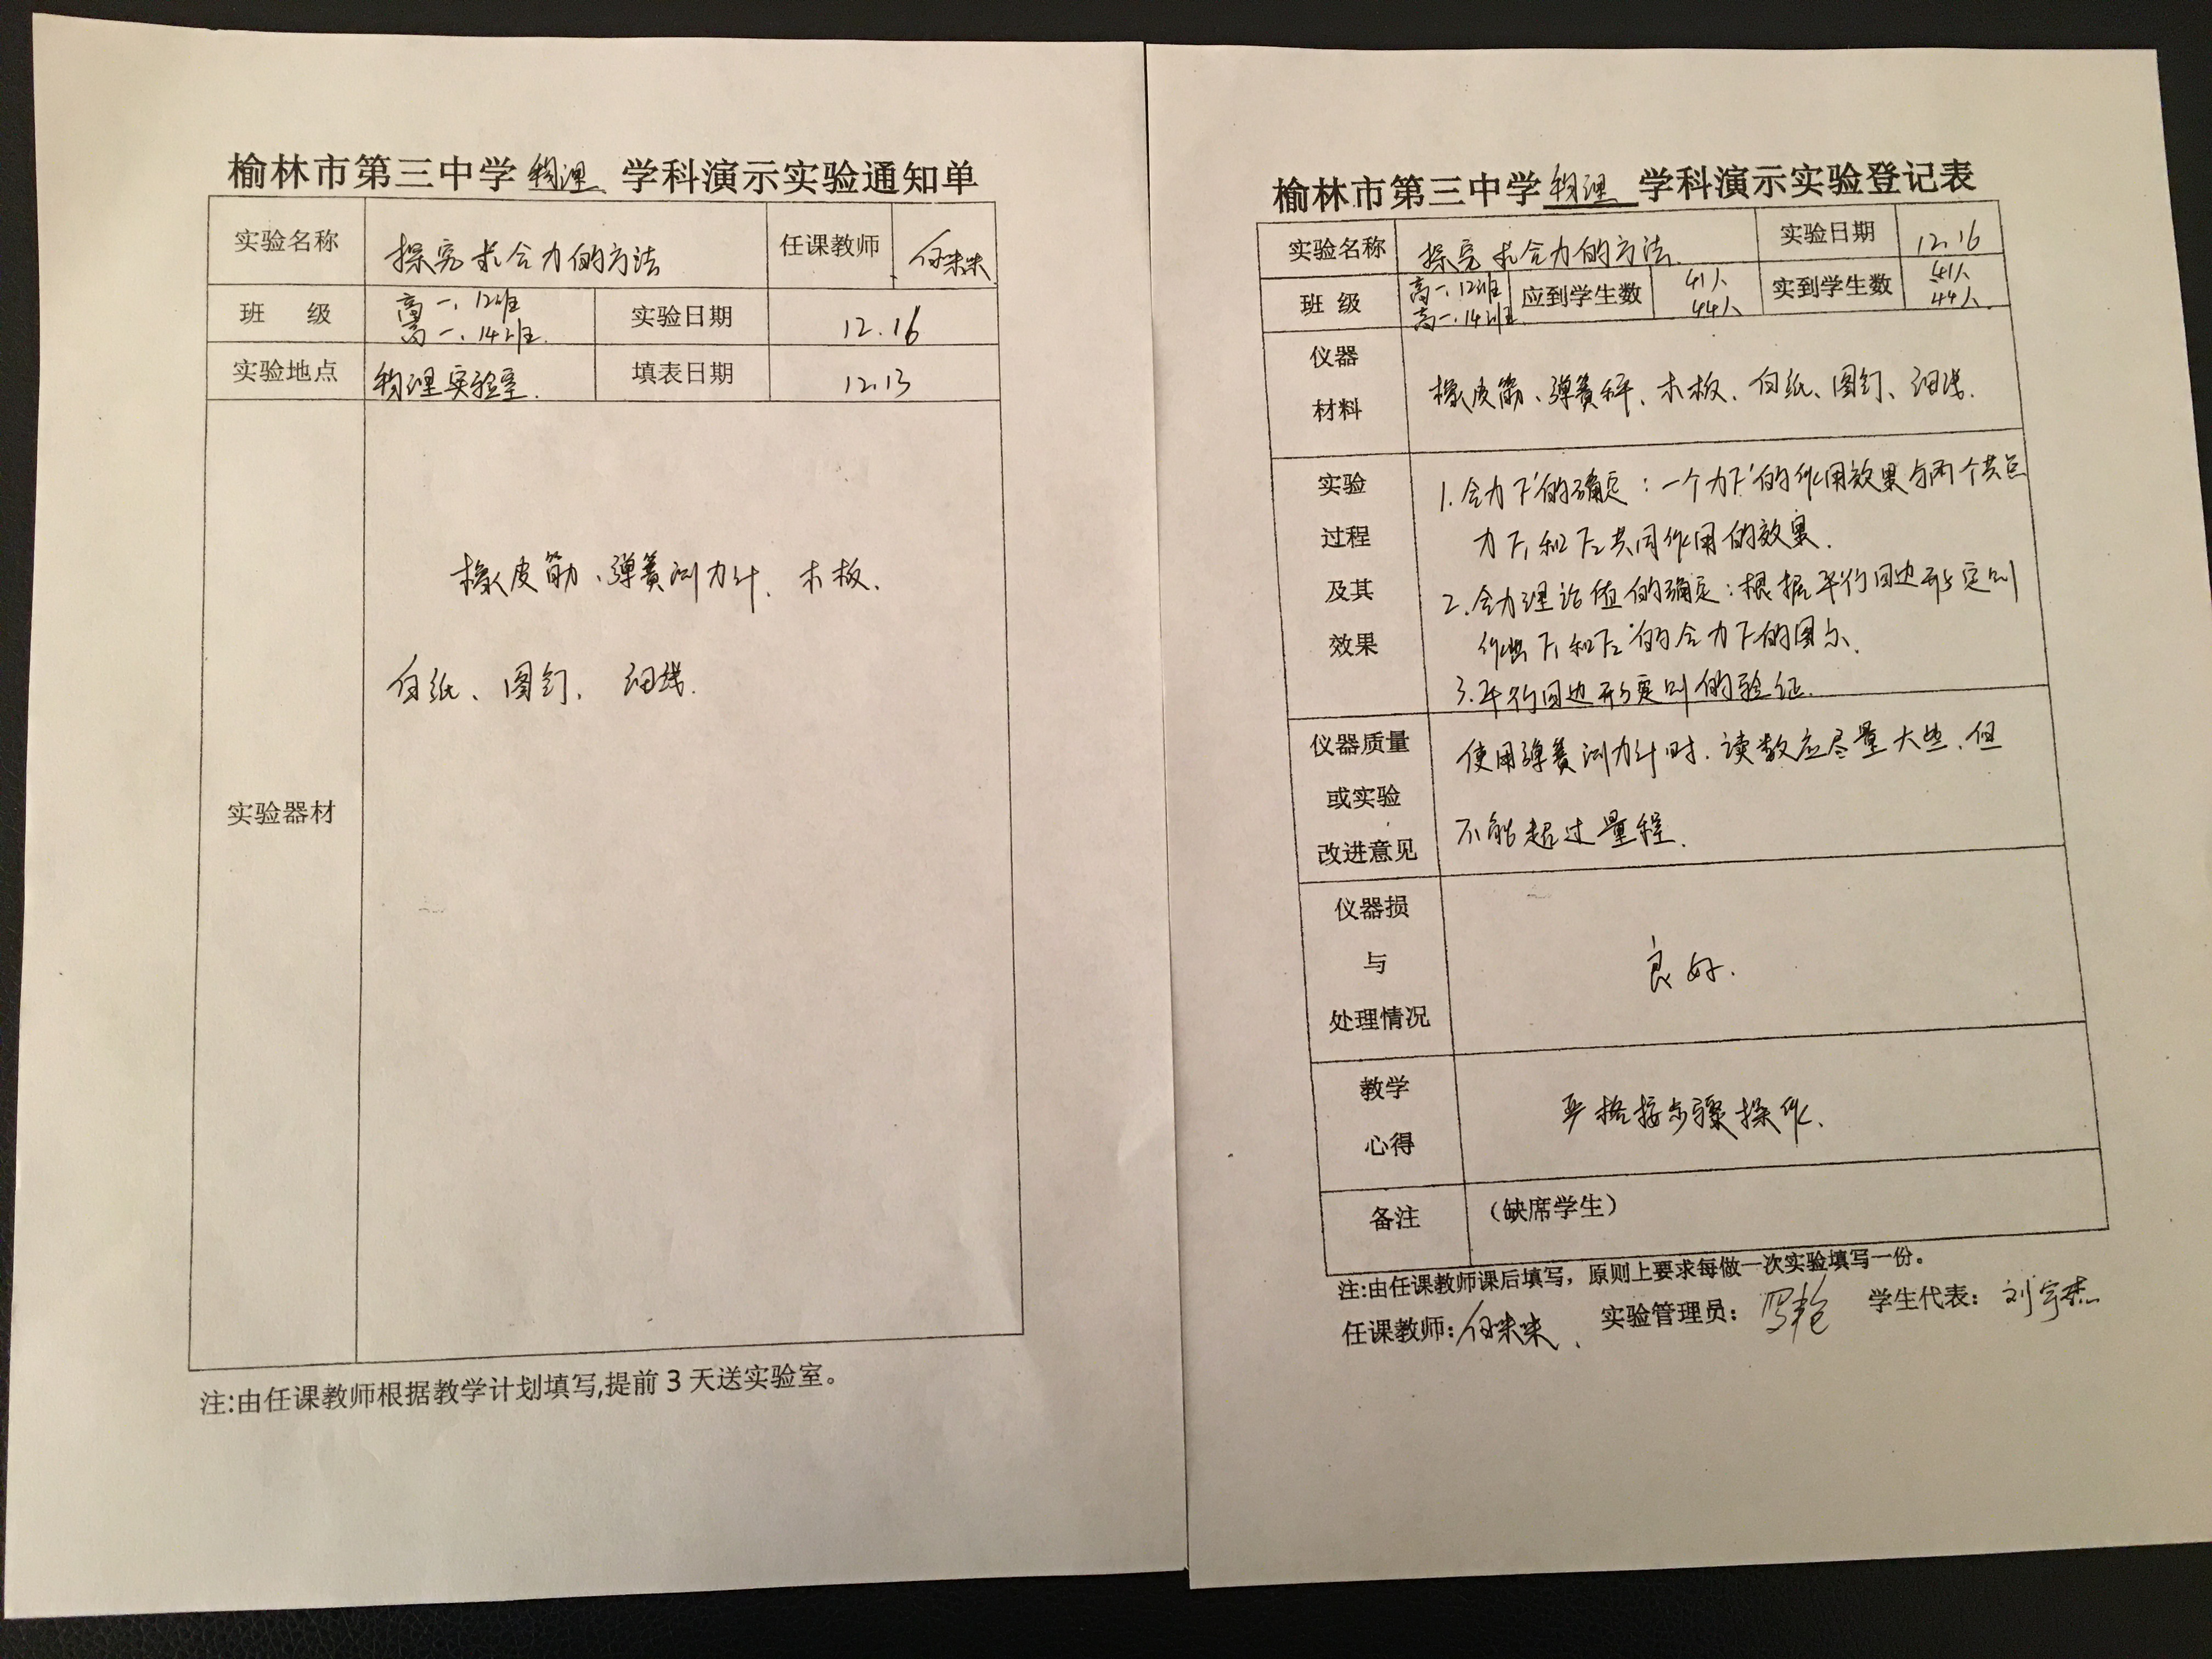 榆林市第三中学 物理 学科演示实验通知单
实验名称 探究求合力的方法 任课教师
班 级 高一.12班 高一.14班. 实验日期 12.16
实验地点 物理实验室. 填表日期 12.13
实验器材
橡皮筋、弹簧测力计、木板.
白纸、图钉、细线.
注:由任课教师根据教学计划填写,提前 3 天送实验室。
榆林市第三中学 物理 学科演示实验登记表
实验名称 探究求合力的方法. 实验日期 12.16
班 级 高一.12班 高一.14班. 应到学生数 41人 44人 实到学生数 41人 44人.
仪器
材料
橡皮筋、弹簧秤、木板、白纸、图钉、细线.
实验
过程
及其
效果
1.合力F'的确定:一个力F'的作用效果与两个共点
力F₁和F₂共同作用的效果.
2.合力理论值的确定:根据平行四边形定则
作出F₁和F₂的合力F的图示.
3.平行四边形定则的验证.
仪器质量
或实验
改进意见
使用弹簧测力计时.读数应尽量大些.但
不能超过量程.
仪器损
与
处理情况
良好.
教学
心得
严格按步骤操作.
备注 (缺席学生)
注:由任课教师课后填写，原则上要求每做一次实验填写一份。
任课教师: 实验管理员: 学生代表: 刘宇杰